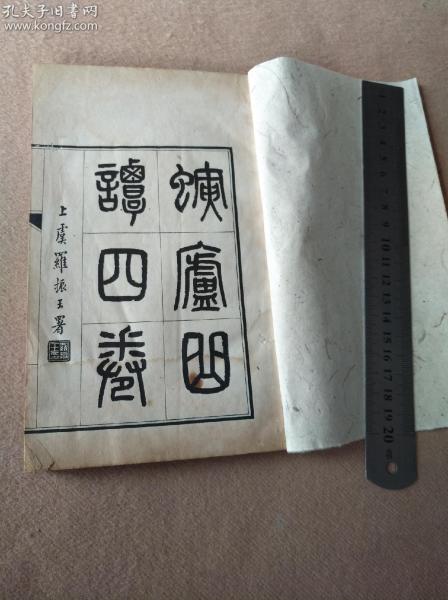 孔夫子旧书网
www.kongfz.com
螾廬曲
譚四卷
上虞羅振玉署
1 2 3 4 5 6 7 8 9 10 11 12 13 14 15 16 17 18 19 20